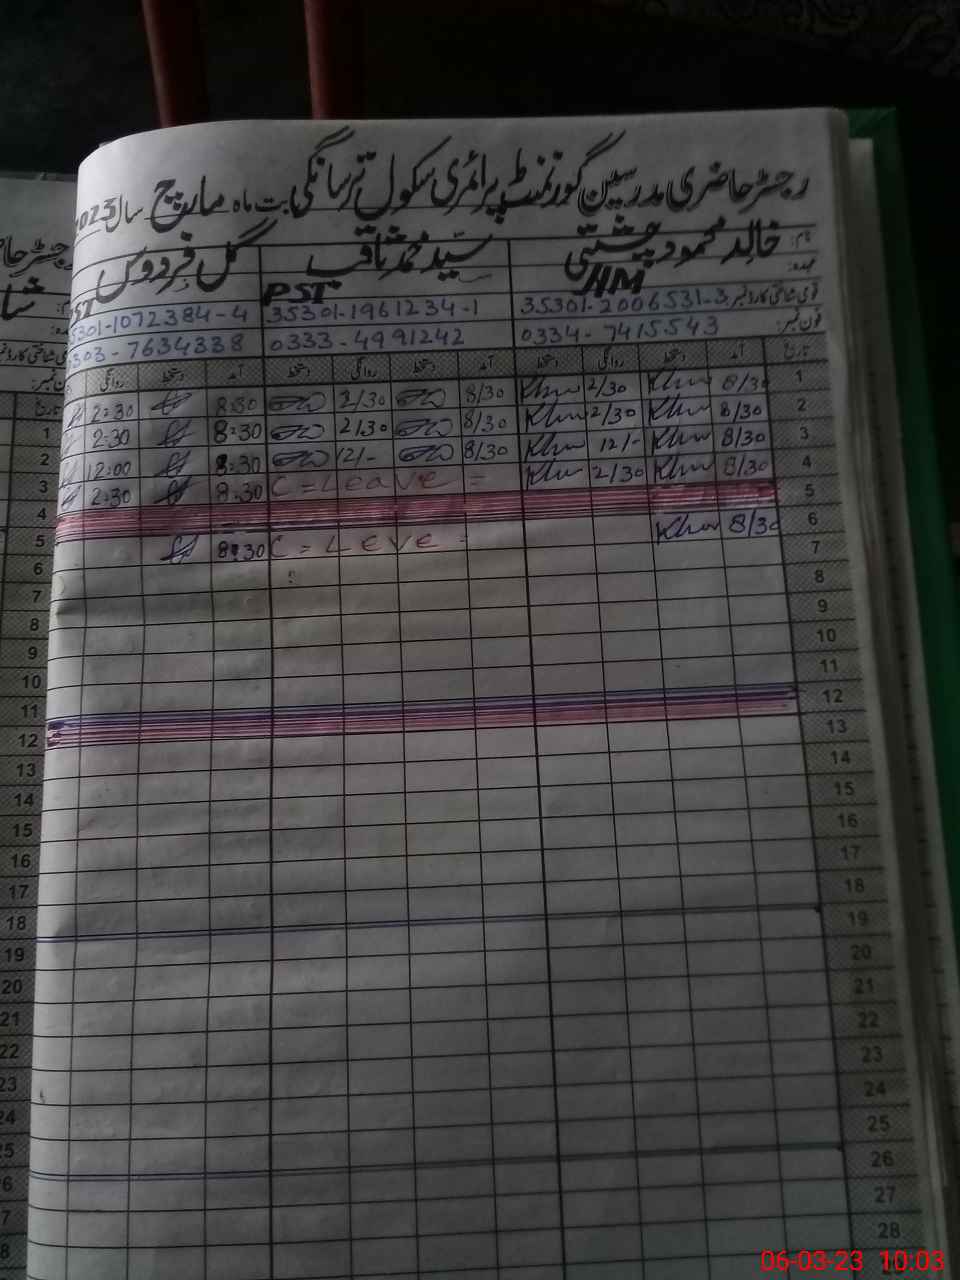 رجسٹر حاضری مدرسین گورنمنٹ پرائمری سکول ترسانگی بت ماہ مارچ سال 2023
نام: خالد محمود چشتی سید محمد ثاقب گل فردوس
عہدہ: HM PST PST
قومی شناختی کارڈ نمبر 35301-2006531-3 35301-1961234-1 35301-1072384-4
فون نمبر: 0334-7415543 0333-4991242 0303-7634338
تاریخ آمد دستخط روانگی دستخط آمد دستخط روانگی دستخط آمد دستخط روانگی
1 8/30 2/30 8/30 2/30 8:30 2:30
2 8/30 2/30 8/30 2/30 8:30 2:30
3 8/30 12/- 8/30 12/- 8:30 12:00
4 8/30 2/30 C = Leave = 8:30 2:30
5
6 8/30 C = LeVe = 8:30
7
8
9
10
11
12
13
14
15
16
17
18
19
20
21
22
23
24
25
26
27
28
رجسٹر
تاریخ
1
2
3
4
5
6
7
8
9
10
11
12
13
14
15
16
17
18
19
20
21
22
23
24
25
06-03-23 10:03